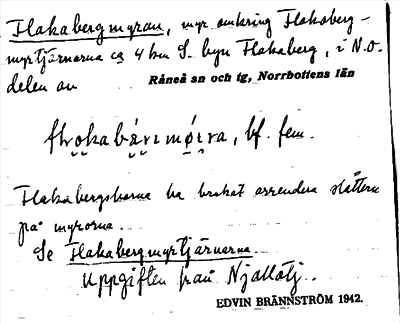 Flakabergmyran, myr omkring Flakaberg-
myrtjärnarna ca 4 km S. byn Flakaberg, i N.O.
delen av Råneå sn och tg, Norrbottens län
bf. fem.
Flakabergsborna ha brukat arrendera slåttern
på myrorna.
Se Flakabergmyrtjärnarna.
Uppgiften från Njallatj.
EDVIN BRÄNNSTRÖM 1942.